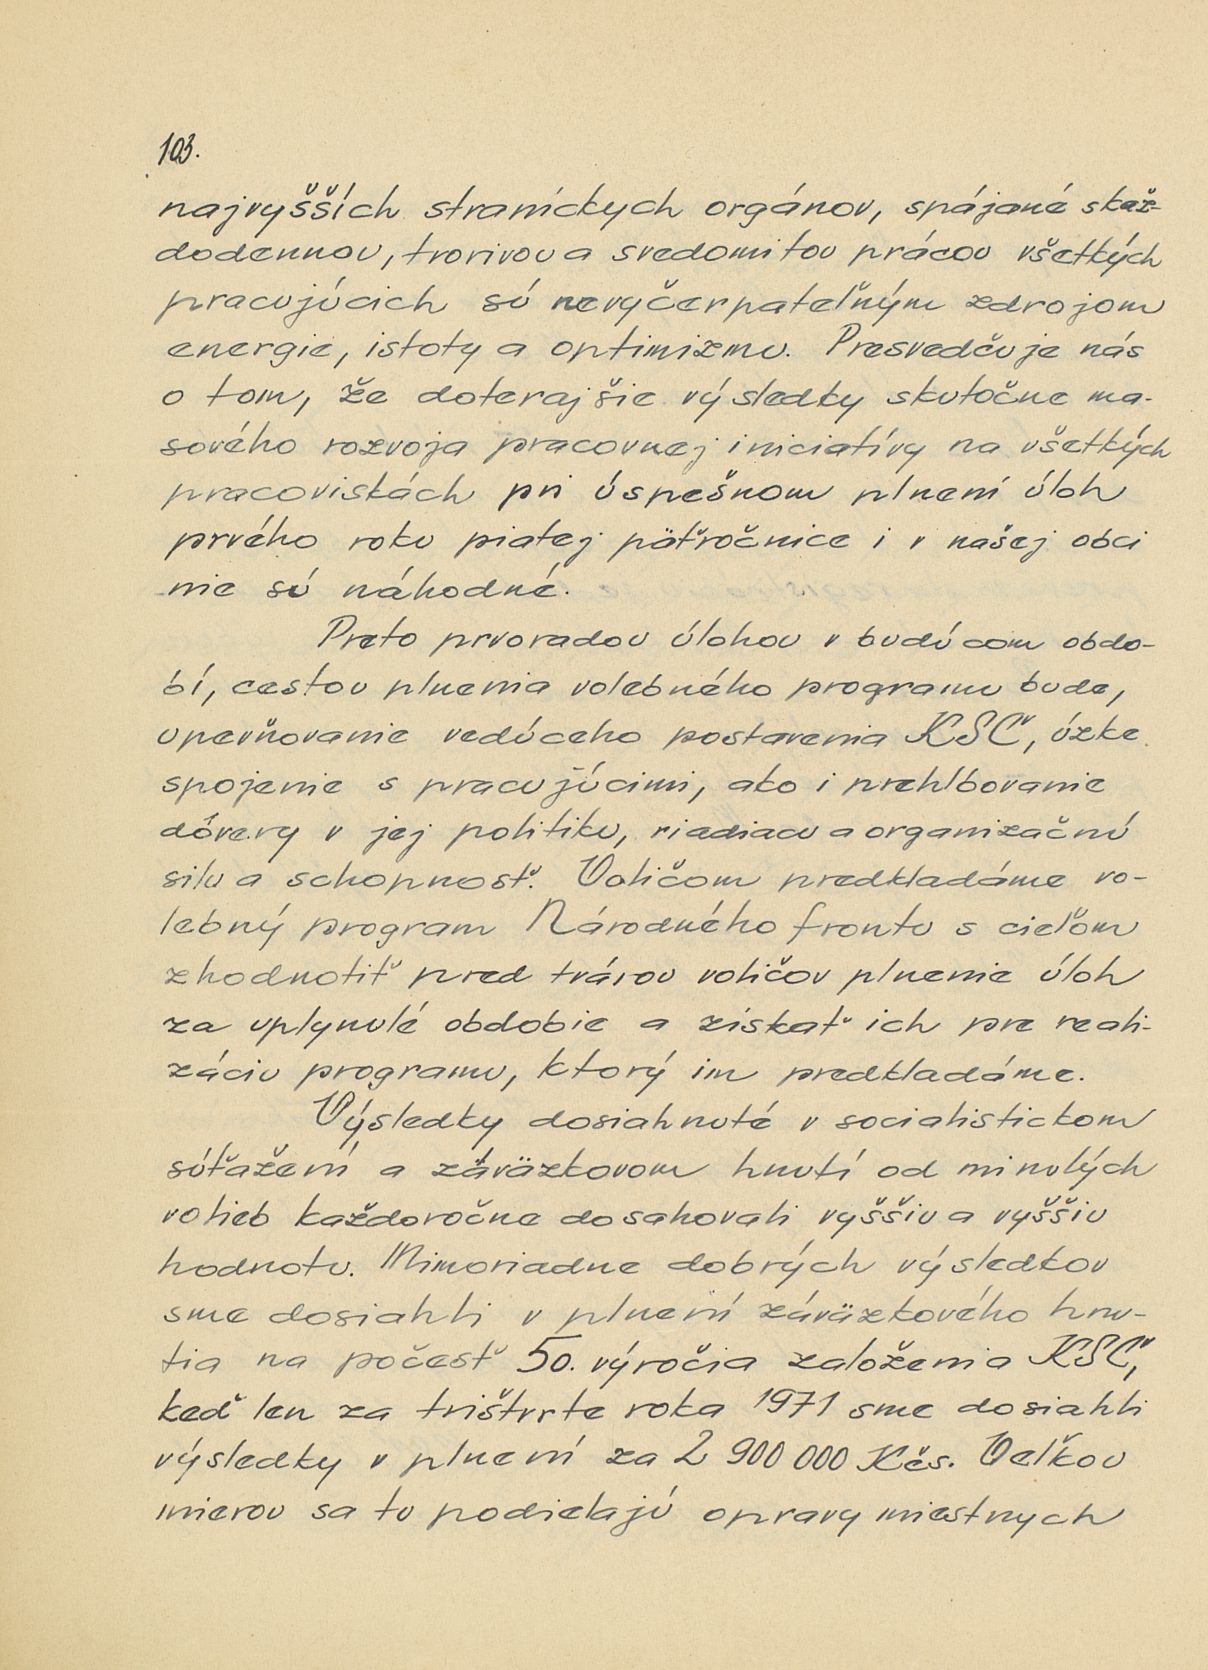 103.
najvyšších straníckych orgánov, spájané s každ-
dodennou, tvorivou a svedomitou prácou všetkých
pracujúcich sú nevyčerpateľným zdrojom
energie, istoty a optimizmu. Presvedčuje nás
o tom, že doterajšie výsledky skutočne ma-
sového rozvoja pracovnej iniciatívy na všetkých
pracoviskách pri úspešnom plnení úloh
prvého roku piatej päťročnice i v našej obci
nie sú náhodné.
Preto prvoradou úlohou v budúcom obdo-
bí, cestou plnenia volebného programu bude,
upevňovanie vedúceho postavenia KSČ, úzke
spojenie s pracujúcimi, ako i prehlbovanie
dôvery v jej politiku, riadiacu a organizačnú
silu a schopnosť. Voličom predkladáme vo-
lebný program Národného frontu s cieľom
zhodnotiť pred tvárou voličov plnenie úloh
za uplynulé obdobie a získať ich pre reali-
záciu programu, ktorý im predkladáme.
Výsledky dosiahnuté v socialistickom
súťažení a záväzkovom hnutí od minulých
volieb každoročne dosahovali vyššiu a vyššiu
hodnotu. Mimoriadne dobrých výsledkov
sme dosiahli v plnení záväzkového hnu-
tia na počesť 50. výročia založenia KSČ,
keď len za trištvrte roka 1971 sme dosiahli
výsledky v plnení za 2 900 000 Kčs. Veľkou
mierou sa tu podielajú opravy miestnych